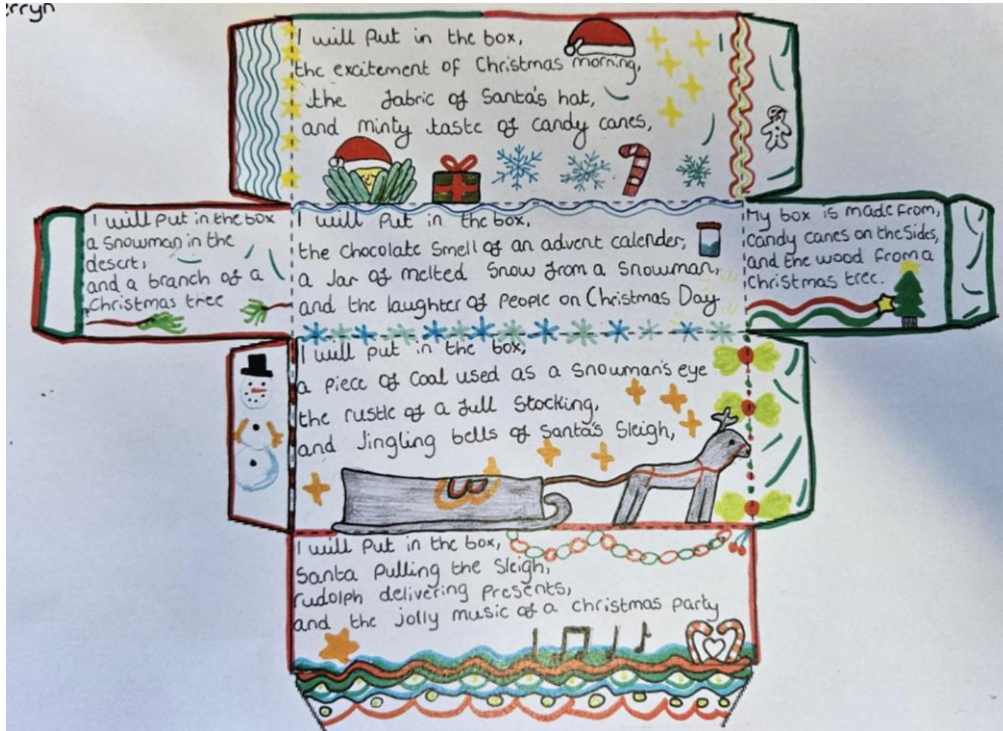 erryn
I will put in the box,
the excitement of Christmas morning,
the fabric of Santa's hat,
and minty taste of candy canes,
I will put in the box
a snowman in the
desert,
and a branch of a
Christmas tree
I will put in the box,
the chocolate smell of an advent calender,
a Jar of melted snow from a snowman,
and the laughter of people on Christmas Day
My box is made from,
candy canes on the sides,
and the wood from a
christmas tree.
I will put in the box,
a piece of coal used as a snowman's eye
the rustle of a full stocking,
and Jingling bells of Santa's Sleigh,
I will put in the box,
Santa pulling the sleigh,
rudolph delivering presents,
and the jolly music of a christmas party